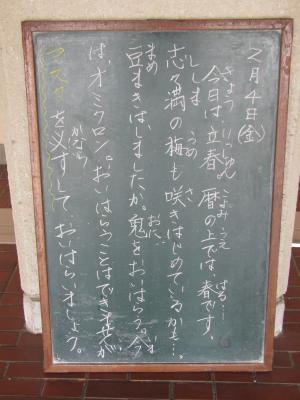 ２月４日(金)
きょう りっしゅん こよみ うえ はる…
今日は、立春 暦の上では、春です。
ししま うめ さ
志々満の梅も咲きはじめているかも…。
まめ おに いま
豆まきはしましたか。鬼をおいはらう。今
は、オミクロン。おいはらうことはできませんが
かなら
マスクを必ずして、おいはらいましょう。